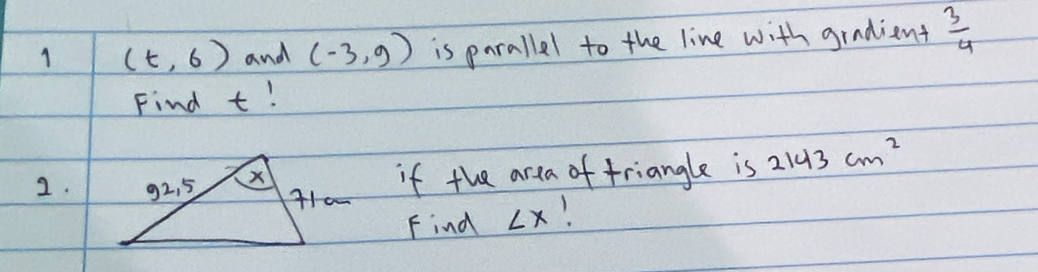 1 (t, 6) and (-3,9) is parallel to the line with gradient 3/4
Find t!
2. 92,5 x 71 cm if the area of triangle is 2143 cm²
Find ∠x!